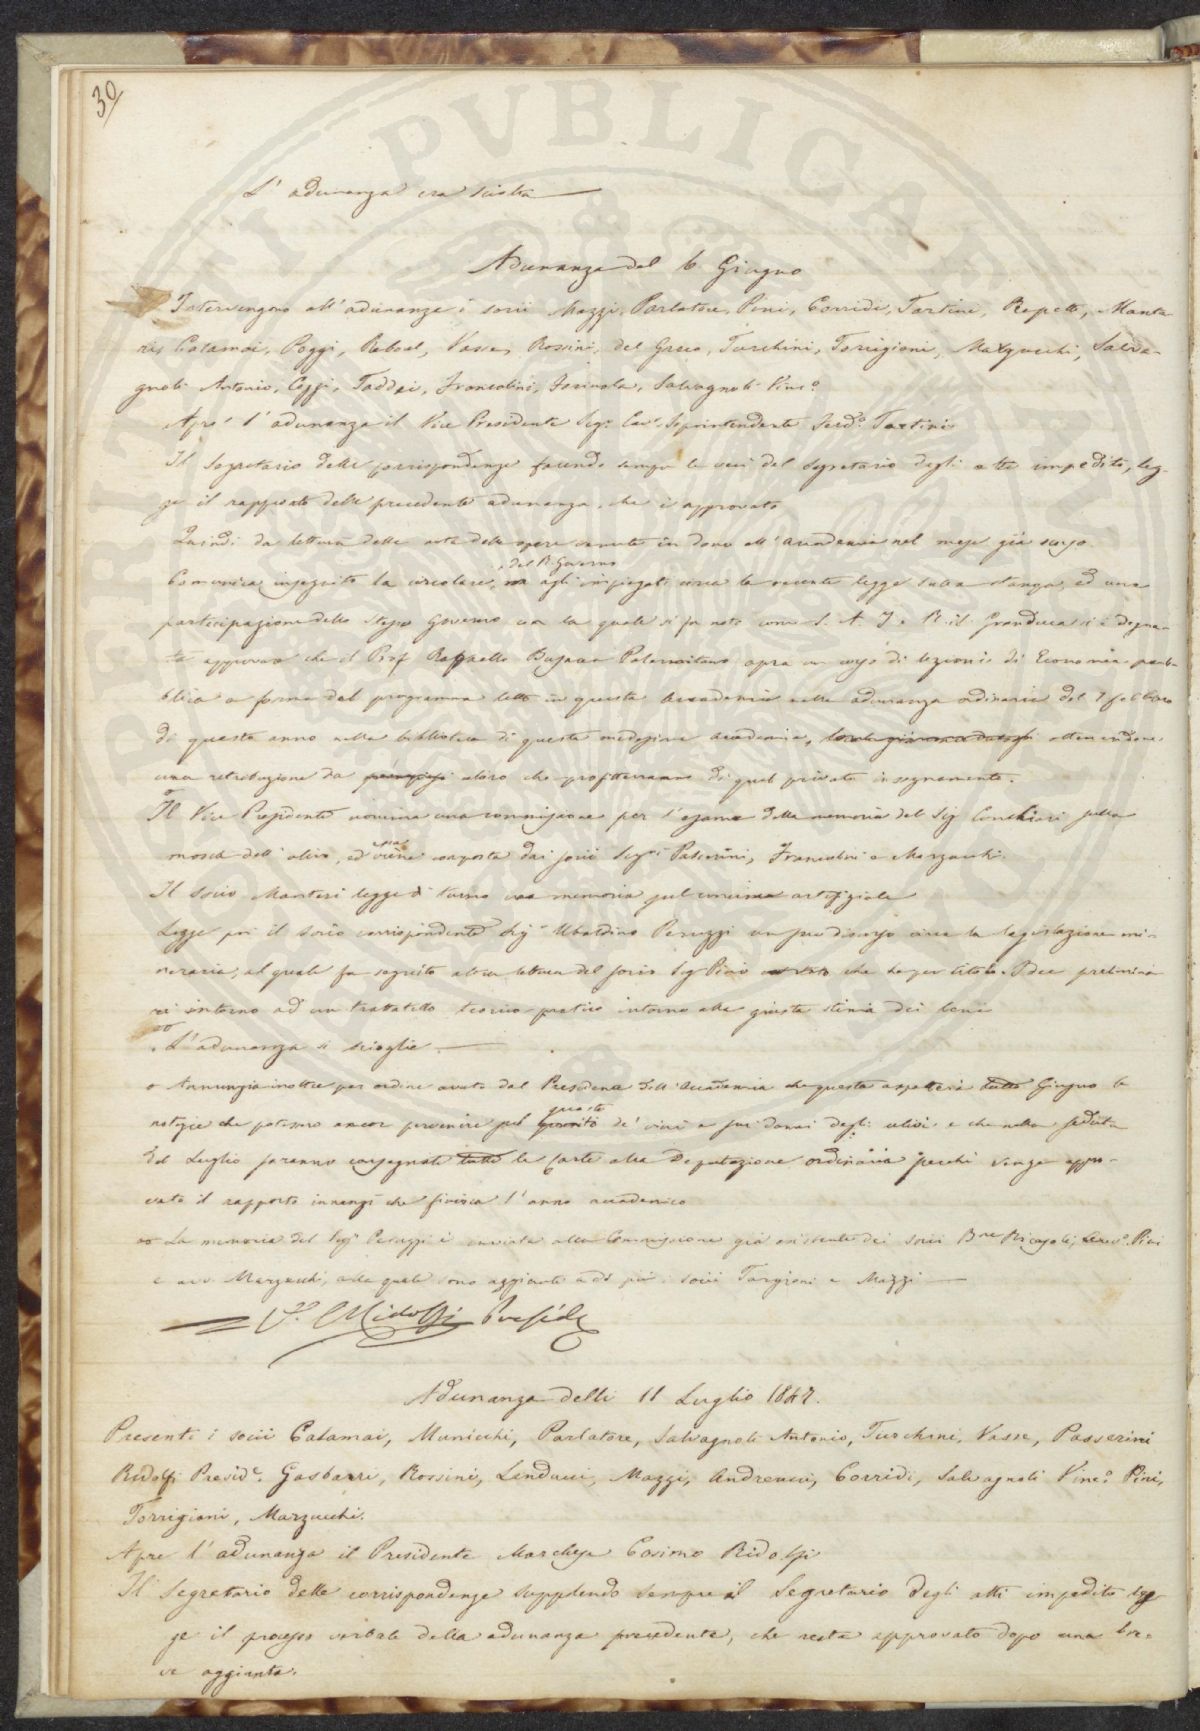 30
L'adunanza era sciolta
Adunanza del 6 Giugno
Intervengono all'adunanza i socii Mazzi, Parlatore, Pini, Corridi, Tartini, Repetti, Mante
ri, Calamai, Poggi, Reboul, Vasse, Rossini, del Greco, Turchini, Torrigiani, Marzucchi, Salva-
gnoli Antonio, Ceppi, Taddei, Francolini, Salvagnoli Vinc.o
Apre l'adunanza il Vice Presidente Sig. Cav. Soprintendente Ferd.o Tartini
Il Segretario delle corrispondenze facendo sempre le veci del Segretario degli atti impedito, leg-
ge il rapporto della precedente adunanza, che è approvato
Quindi da lettura della nota delle opere venute in dono all'Accademia nel mese già scorso.
Comunica inseguito la circolare del R. Governo agli impiegati circa la recente legge sulla stampa, ed una
participazione dello stesso Governo con la quale si fa noto come S. A. I. e R. il Granduca si è degna-
to approvare che il Prof Raffaello Busacca Palermitano apra un corso di lezioni di Economia pub-
blica a forma del programma letto in questa Accademia nella adunanza ordinaria del 7 febbraio
di questo anno nella biblioteca di questa medesima Accademia, ottenendone
una retribuzione da coloro che profitteranno di quel privato insegnamento.
Il Vice Presidente nomina una commissione per l'esame della memoria del Sig sulla
mosca dell'olivo, ed viene composta dai socii Sigri Passerini, Francolini e Marzucchi.
Il Socio Manteri legge di turno una memoria sul concime artifiziale
Legge poi il socio corrispondente Sigr Ubaldino Peruzzi un suo discorso circa la legislazione mi-
neraria, al quale fa seguito altra lettura del socio Sig Pini che ha per titolo. Idee prelimina
ri intorno ad un trattatetto teorico pratico intorno alla giusta stima dei beni
oo
L'adunanza si scioglie
o Annunzia inoltre per ordine avuto dal Presidente dell'Accademia che questa aspetterà tutto Giugno le
notizie che potessero ancor pervenire sul quesito de' vini e sui danni degli ulivi e che nella seduta
del Luglio saranno consegnate tutte le carte alla Deputazione ordinaria perchè venga appro-
vato il rapporto innanzi che finisca l'anno accademico
oo La memoria del Sigr Peruzzi è inviata alla Commissione già esistente dei socii Bne Ricasoli, Pini
e avv Marzucchi, alla quale sono aggiunti i socii Targioni e Mazzi
C. Ridolfi Preside
Adunanza delli 11 Luglio 1847.
Presenti i socii Calamai, Municchi, Parlatore, Salvagnoli Antonio, Turchini, Vasse, Passerini
Ridolfi Preside. Gasbarri, Rossini, Landucci, Mazzi, Andreucci, Corridi, Salvagnoli Vinc.o Pini,
Torrigiani, Marzucchi.
Apre l'adunanza il Presidente Marchese Cosimo Ridolfi
Il Segretario delle corrispondenze supplendo sempre il Segretario degli atti impedito leg
ge il processo verbale della adunanza precedente, che resta approvato dopo una bre-
ve aggiunta.